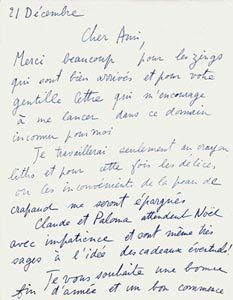 21 Décembre
Cher Ami,
Merci beaucoup pour les zings
qui sont bien arrivés et pour votre
gentille lettre qui m'encourage
à me lancer dans ce domaine
inconnu pour moi
Je travaillerai seulement au crayon
litho et pour cette fois les délices
ou les inconvénients de la peau de
crapaud me seront épargnés
Claude et Paloma attendent Noël
avec impatience et sont même très
sages à l'idée des cadeaux éventuels!
Je vous souhaite une bonne
fin d'année et un bon commence